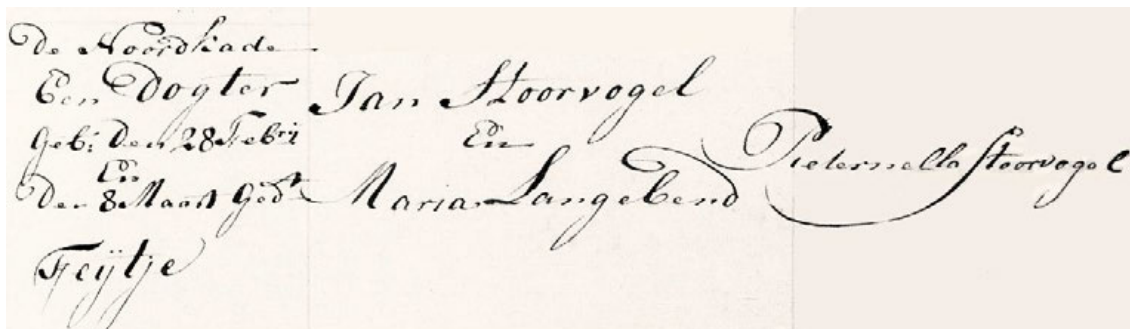 De Noordkade
Een Dogter
Geb: Den 28 Febrij
En
Den 8 Maart Gedt
Feijtje
Jan Stoorvogel
En
Maria Langebend
Pieternella Stoorvogel